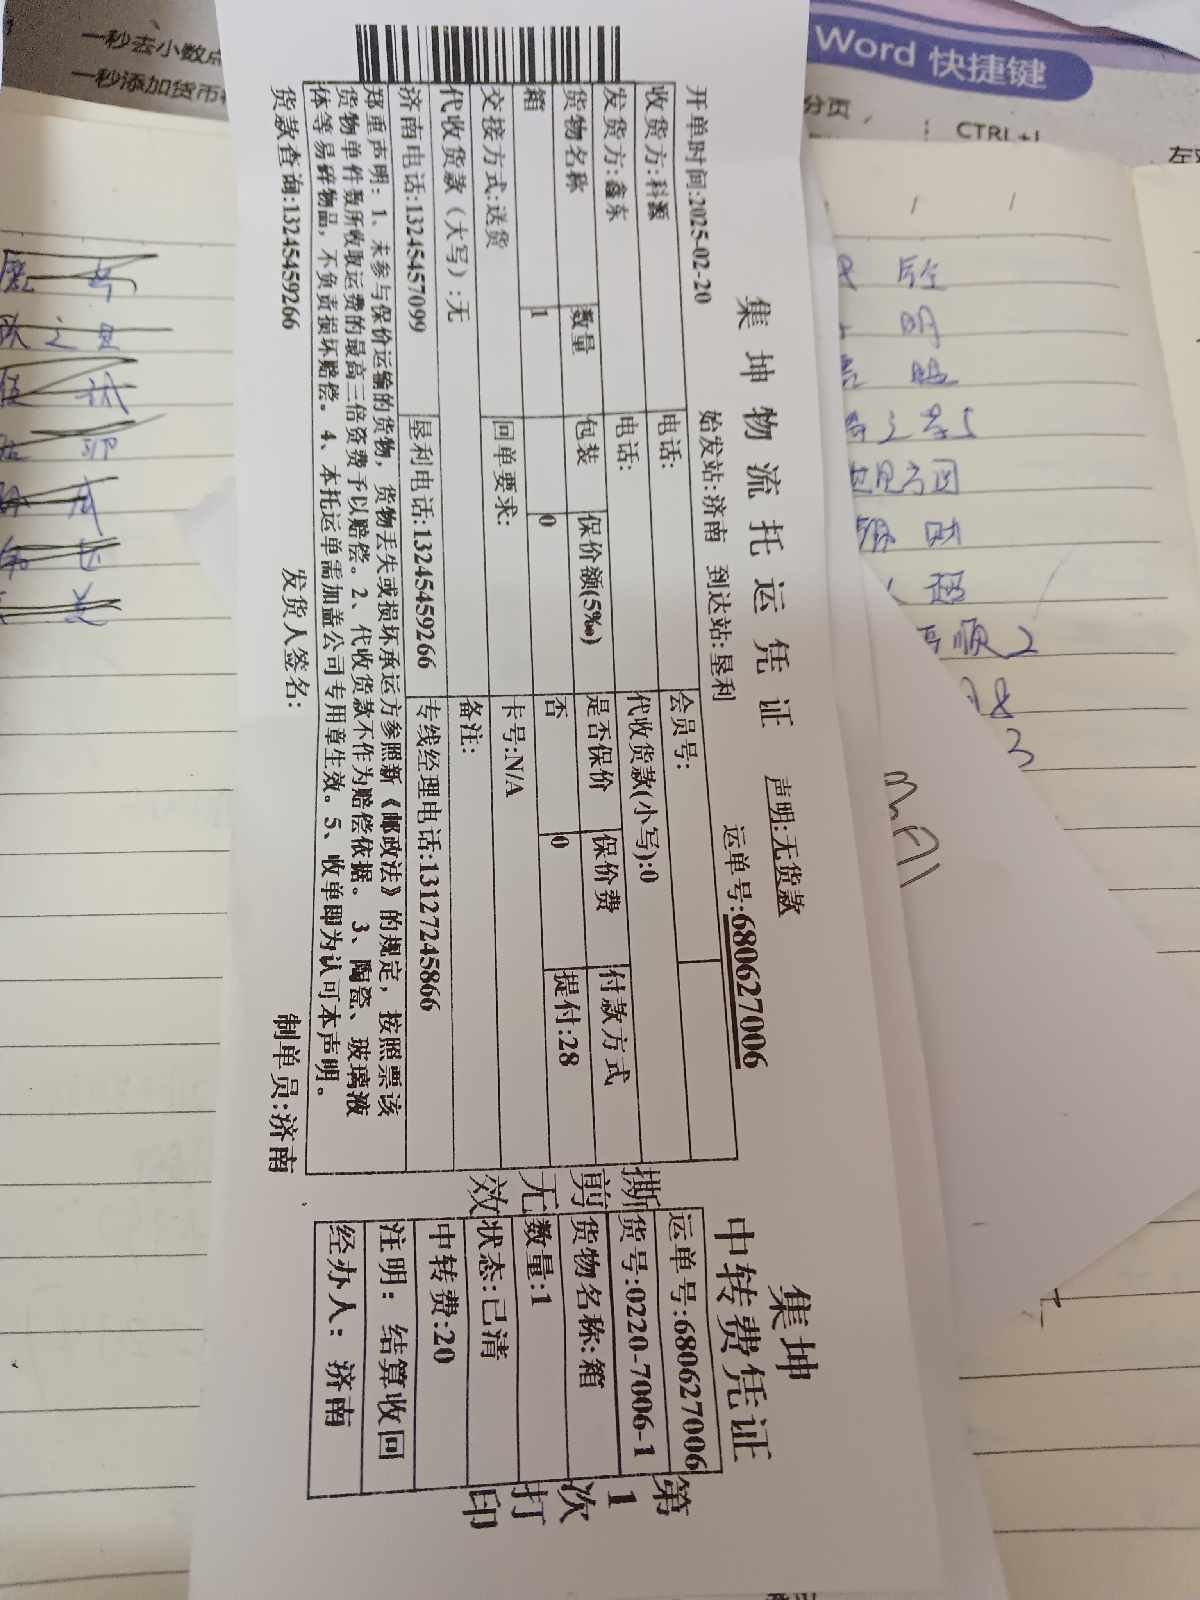 一秒去小数点
一秒添加货币
Word 快捷键
分页
CTRL+J
集坤物流托运凭证
声明:无货款
开单时间:2025-02-20 始发站:济南 到达站:垦利 运单号:680627006
收货方:科源 电话: 会员号:
发货方:鑫东 电话: 代收货款(小写):0
货物名称 数量 包装 保价额(5‰) 是否保价 保价费 付款方式
箱 1 0 否 0 提付:28
交接方式:送货 回单要求: 卡号:N/A
代收货款（大写）:无 备注:
济南电话:13245457099 垦利电话:13245459266 专线经理电话:13127245866
郑重声明：1、未参与保价运输的货物，货物丢失或损坏承运方参照新《邮政法》的规定，按照票该
货物单件数所收取运费的最高三倍资费予以赔偿。2、代收货款不作为赔偿依据。3、陶瓷、玻璃液
体等易碎物品，不负责损坏赔偿。4、本托运单需加盖公司专用章生效。5、收单即为认可本声明。
货款查询:13245459266 发货人签名: 制单员:济南
撕剪无效
集坤
中转费凭证
运单号:680627006
货号:0220-7006-1
货物名称:箱
数量:1
状态:已清
中转费:20
注明：结算收回
经办人：济南
第1次打印